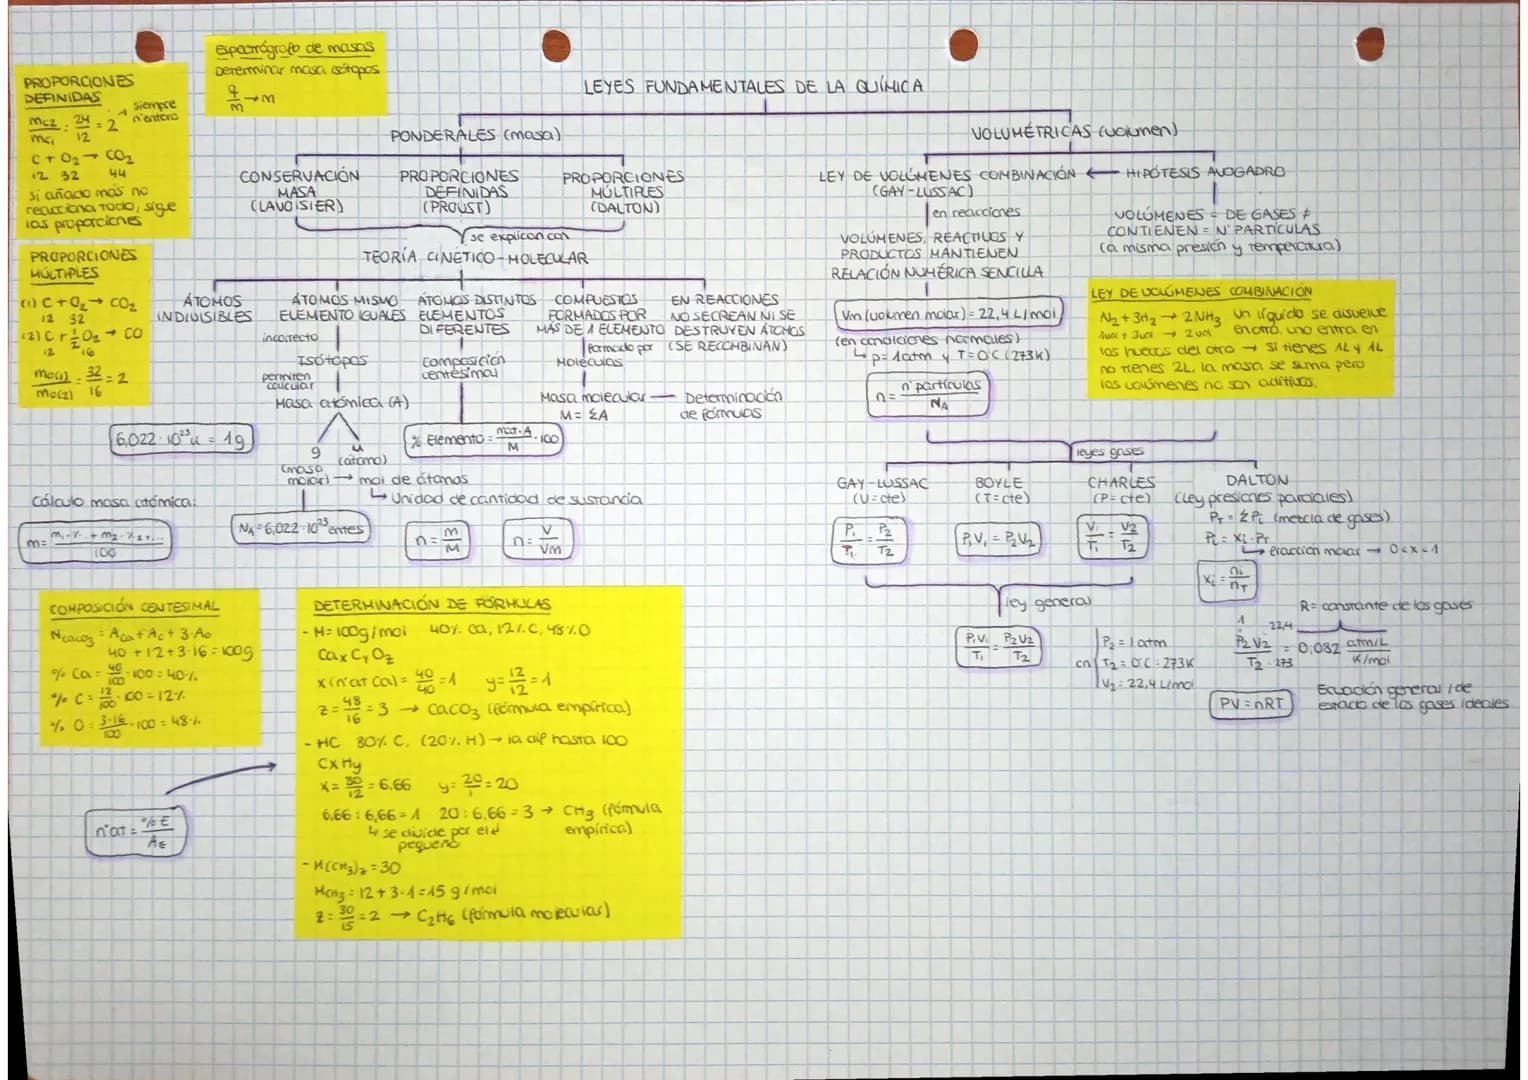 Espectrógrafo de masas
Determinar masa isótopos
q/m → m
PROPORCIONES
DEFINIDAS
siempre
n° entero
mC2/mC1 : 24/12 = 2
C + O₂ → CO₂
12 32 44
si añado más no
reacciona todo, sigue
las proporciones
PROPORCIONES
MÚLTIPLES
(1) C + O₂ → CO₂
12 32
(2) C + 1/2 O₂ → CO
12 16
mO(1)/mO(2) = 32/16 = 2
LEYES FUNDAMENTALES DE LA QUÍMICA
PONDERALES (masa)
CONSERVACIÓN
MASA
(LAVOISIER)
PROPORCIONES
DEFINIDAS
(PROUST)
PROPORCIONES
MÚLTIPLES
(DALTON)
se explican con
TEORÍA CINÉTICO-MOLECULAR
ÁTOMOS
INDIVISIBLES
ÁTOMOS MISMO
ELEMENTO IGUALES
incorrecto
Isótopos
permiten
calcular
Masa atómica (A)
g
(masa
molar)
u
(átomo)
→ mol de átomos
↳ Unidad de cantidad de sustancia
ÁTOMOS DISTINTOS
ELEMENTOS
DIFERENTES
composición
centesimal
% Elemento = n°at·A/M · 100
COMPUESTOS
FORMADOS POR
MÁS DE 1 ELEMENTO
formado por
Moléculas
Masa molecular — Determinación
M = ΣA de fórmulas
EN REACCIONES
NO SE CREAN NI SE
DESTRUYEN ÁTOMOS
(SE RECOMBINAN)
6,022·10²³u = 1g
Cálculo masa atómica:
m = m₁·%₁ + m₂·%₂+.../100
NA = 6,022·10²³ entes
n = m/M
n = V/Vm
VOLUMÉTRICAS (volumen)
LEY DE VOLÚMENES COMBINACIÓN ← HIPÓTESIS AVOGADRO
(GAY-LUSSAC)
en reacciones
VOLÚMENES, REACTIVOS Y
PRODUCTOS MANTIENEN
RELACIÓN NUMÉRICA SENCILLA
VOLÚMENES = DE GASES ≠
CONTIENEN = N° PARTÍCULAS
(a misma presión y temperatura)
Vm (volumen molar) = 22,4 L/mol
(en condiciones normales)
↳ p = 1atm y T = 0°C (273K)
n = n° partículas/NA
LEY DE VOLÚMENES COMBINACIÓN
N₂ + 3H₂ → 2NH₃ Un líquido se disuelve
1vol + 3vol → 2vol en otro. uno entra en
los huecos del otro → Si tienes 1L y 1L
no tienes 2L, la masa se suma pero
los volúmenes no son aditivos.
leyes gases
GAY-LUSSAC
(V=cte)
P₁/T₁ = P₂/T₂
BOYLE
(T=cte)
P₁V₁ = P₂V₂
CHARLES
(P=cte)
V₁/T₁ = V₂/T₂
DALTON
(Ley presiones parciales)
PT = ΣPi (mezcla de gases)
Pi = Xi·PT
↳ fracción molar → 0<x<1
Xi = ni/nT
ley general
P₁V₁/T₁ = P₂V₂/T₂
cn
P₂ = 1 atm
T₂ = 0°C = 273K
V₂ = 22,4 L/mol
R = constante de los gases
1 22,4
P₂V₂/T₂ = 0,082 atm/L / K/mol
273
PV = nRT
Ecuación general / de
estado de los gases ideales
COMPOSICIÓN CENTESIMAL
MCaCO₃ = ACa + AC + 3·AO
40 + 12 + 3·16 = 100g
% Ca = 40/100 · 100 = 40%
% C = 12/100 · 100 = 12%
% O = 3·16/100 · 100 = 48%
n°at = %E/AE
DETERMINACIÓN DE FÓRMULAS
- M = 100g/mol 40% Ca, 12% C, 48% O
CaxCyOz
x (n°at Ca) = 40/40 = 1 y = 12/12 = 1
z = 48/16 = 3 → CaCO₃ (fórmula empírica)
- HC 80% C, (20% H) → la dif hasta 100
CxHy
x = 80/12 = 6,66 y = 20/1 = 20
6,66 : 6,66 = 1 20 : 6,66 = 3 → CH₃ (fórmula
empírica)
↳ se divide por el +
pequeño
- M(CH₃)z = 30
MCH₃ = 12 + 3·1 = 15 g/mol
z = 30/15 = 2 → C₂H₆ (fórmula molecular)